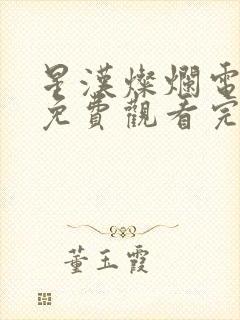 星漢燦爛電
免費觀看完
董玉霞